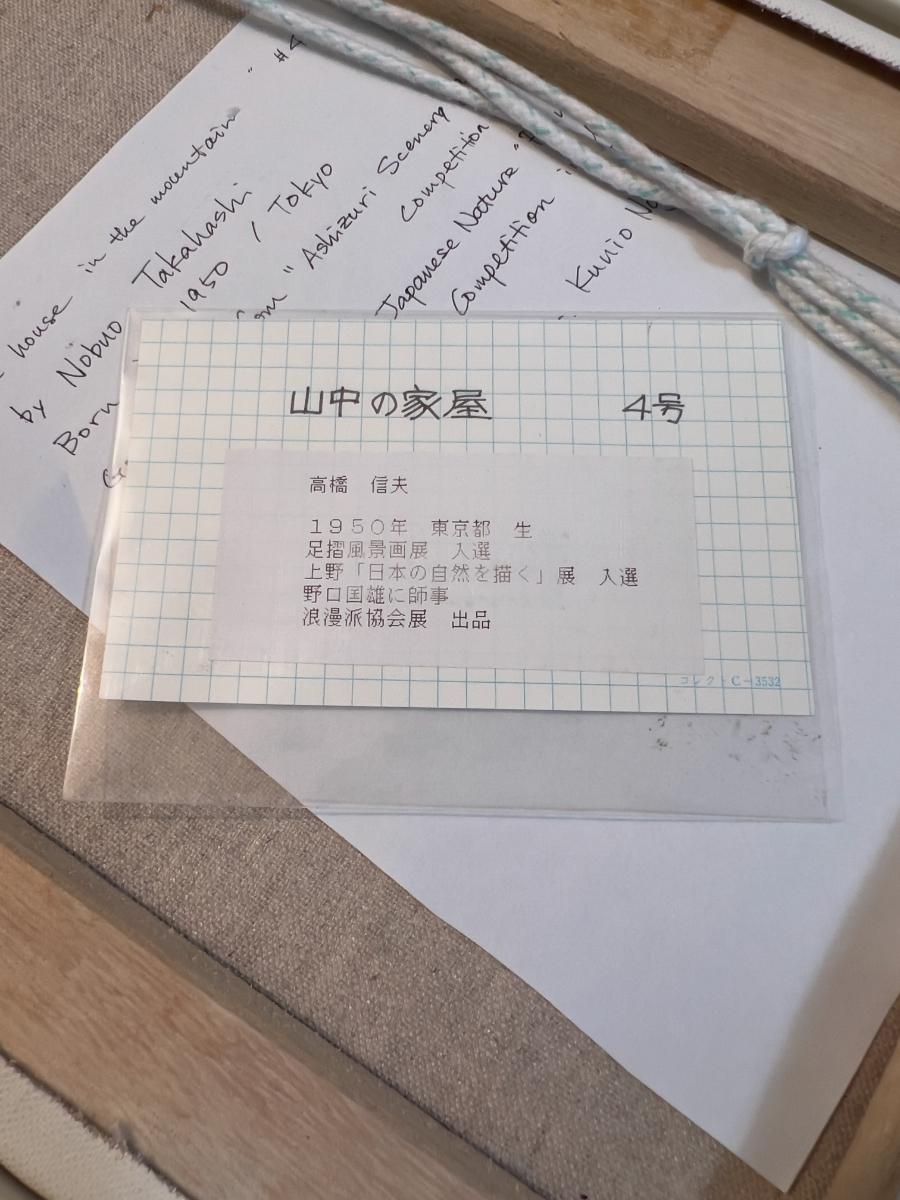 house in the mountain " #4
by Nobuo Takahashi
Born 1950 / Tokyo
"Ashizuri Scenery
Competition
Japanese Nature"
Competition
Kunio
山中の家屋 4号
高橋 信夫
1950年 東京都 生
足摺風景画展 入選
上野「日本の自然を描く」展 入選
野口国雄に師事
浪漫派協会展 出品
コレクト C-3532